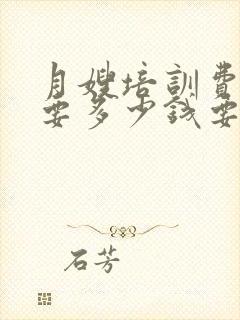 月嫂培訓費
要多少錢要
石芳